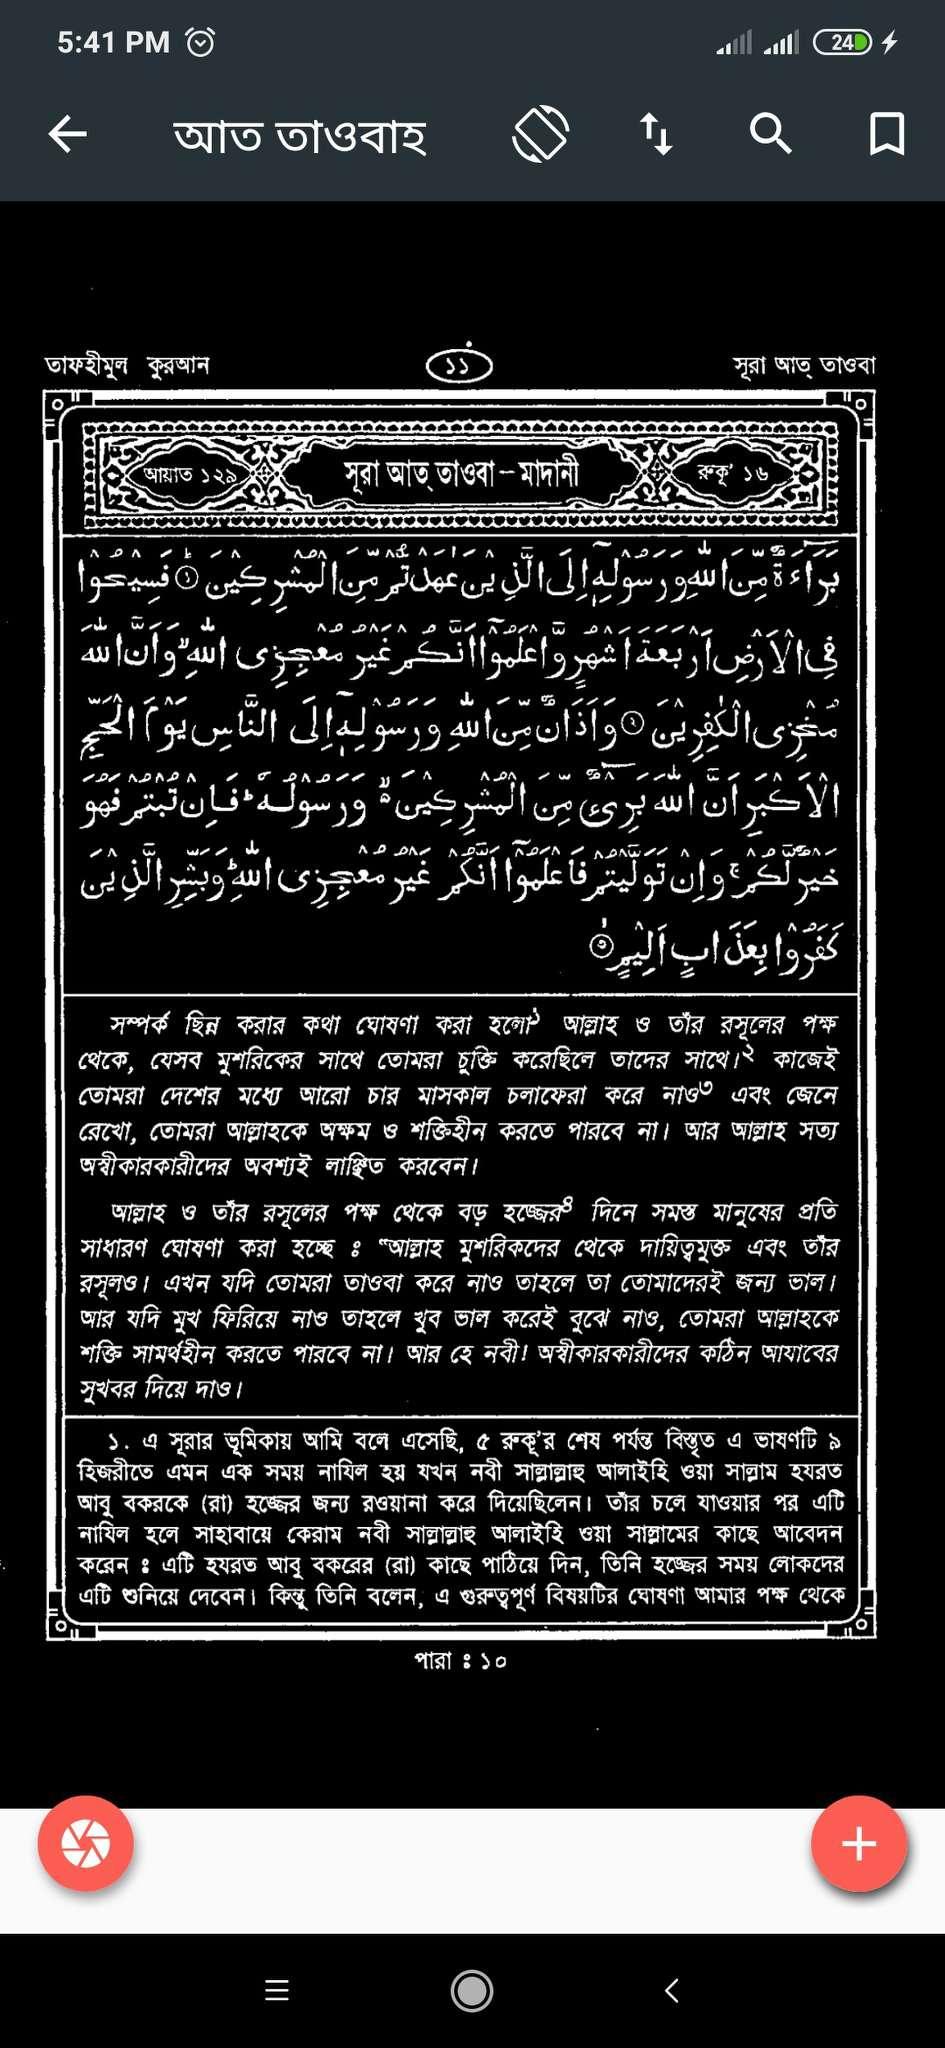 5:41 PM
24
আত তাওবাহ
তাফহীমুল কুরআন
১১
সূরা আত্ তাওবা
আয়াত ১২৯
সূরা আত্ তাওবা – মাদানী
রুকূ' ১৬
بَرَآءَةٌ مِّنَ اللّٰهِ وَرَسُوْلِهٖٓ اِلَى الَّذِيْنَ عٰهَدْتُّمْ مِّنَ الْمُشْرِكِيْنَ ۝١ فَسِيْحُوْا
فِى الْاَرْضِ اَرْبَعَةَ اَشْهُرٍ وَّاعْلَمُوْٓا اَنَّكُمْ غَيْرُ مُعْجِزِى اللّٰهِ ۙ وَاَنَّ اللّٰهَ
مُخْزِى الْكٰفِرِيْنَ ۝٢ وَاَذَانٌ مِّنَ اللّٰهِ وَرَسُوْلِهٖٓ اِلَى النَّاسِ يَوْمَ الْحَجِّ
الْاَكْبَرِ اَنَّ اللّٰهَ بَرِىْٓءٌ مِّنَ الْمُشْرِكِيْنَ ۙ وَرَسُوْلُهٗ ؕ فَاِنْ تُبْتُمْ فَهُوَ
خَيْرٌ لَّكُمْ ۚ وَاِنْ تَوَلَّيْتُمْ فَاعْلَمُوْٓا اَنَّكُمْ غَيْرُ مُعْجِزِى اللّٰهِ ؕ وَبَشِّرِ الَّذِيْنَ
كَفَرُوْا بِعَذَابٍ اَلِيْمٍ ۝٣
সম্পর্ক ছিন্ন করার কথা ঘোষণা করা হলো১ আল্লাহ ও তাঁর রসূলের পক্ষ
থেকে, যেসব মুশরিকের সাথে তোমরা চুক্তি করেছিলে তাদের সাথে।২ কাজেই
তোমরা দেশের মধ্যে আরো চার মাসকাল চলাফেরা করে নাও৩ এবং জেনে
রেখো, তোমরা আল্লাহকে অক্ষম ও শক্তিহীন করতে পারবে না। আর আল্লাহ সত্য
অস্বীকারকারীদের অবশ্যই লাঞ্ছিত করবেন।
আল্লাহ ও তাঁর রসূলের পক্ষ থেকে বড় হজ্জের৪ দিনে সমস্ত মানুষের প্রতি
সাধারণ ঘোষণা করা হচ্ছে ঃ “আল্লাহ মুশরিকদের থেকে দায়িত্বমুক্ত এবং তাঁর
রসূলও। এখন যদি তোমরা তাওবা করে নাও তাহলে তা তোমাদেরই জন্য ভাল।
আর যদি মুখ ফিরিয়ে নাও তাহলে খুব ভাল করেই বুঝে নাও, তোমরা আল্লাহকে
শক্তি সামর্থহীন করতে পারবে না। আর হে নবী! অস্বীকারকারীদের কঠিন আযাবের
সুখবর দিয়ে দাও।
১. এ সূরার ভূমিকায় আমি বলে এসেছি, ৫ রুকূ'র শেষ পর্যন্ত বিস্তৃত এ ভাষণটি ৯
হিজরীতে এমন এক সময় নাযিল হয় যখন নবী সাল্লাল্লাহু আলাইহি ওয়া সাল্লাম হযরত
আবু বকরকে (রা) হজ্জের জন্য রওয়ানা করে দিয়েছিলেন। তাঁর চলে যাওয়ার পর এটি
নাযিল হলে সাহাবায়ে কেরাম নবী সাল্লাল্লাহু আলাইহি ওয়া সাল্লামের কাছে আবেদন
করেন ঃ এটি হযরত আবু বকরের (রা) কাছে পাঠিয়ে দিন, তিনি হজ্জের সময় লোকদের
এটি শুনিয়ে দেবেন। কিন্তু তিনি বলেন, এ গুরুত্বপূর্ণ বিষয়টির ঘোষণা আমার পক্ষ থেকে
পারা ঃ ১০